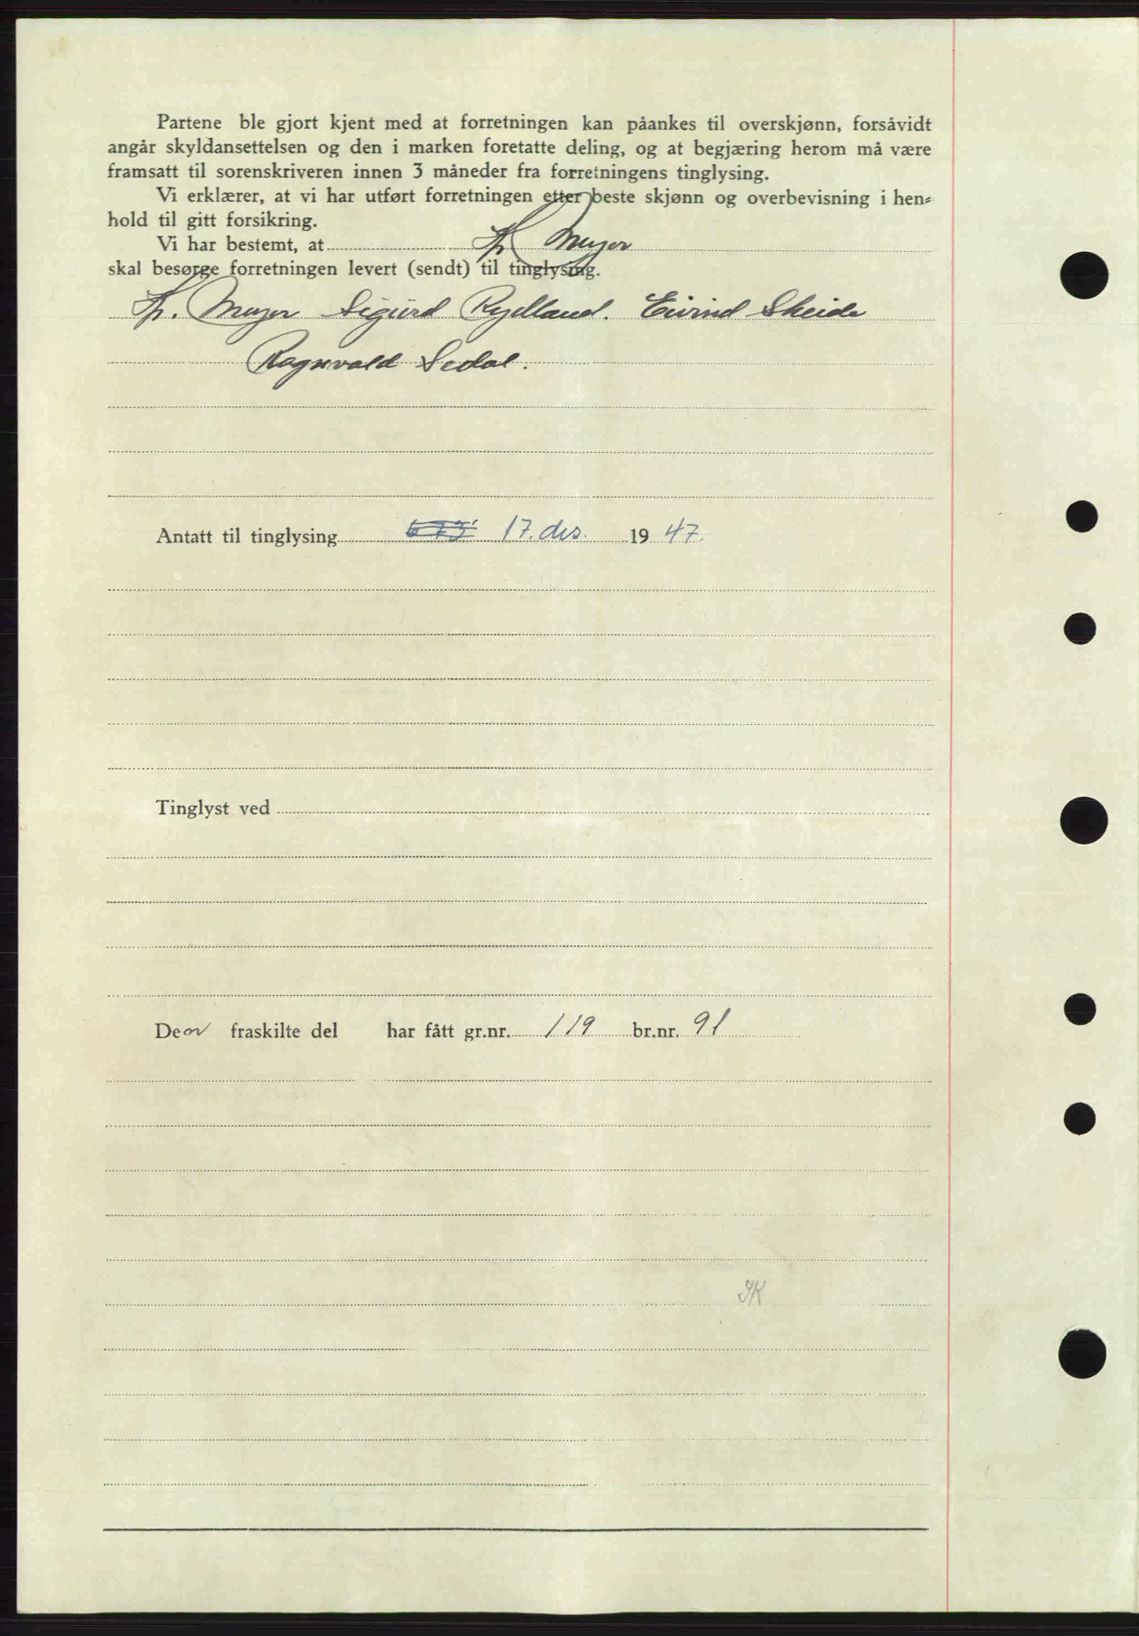 Partene ble gjort kjent med at forretningen kan påankes til overskjønn, forsåvidt
angår skyldansettelsen og den i marken foretatte deling, og at begjæring herom må være
framsatt til sorenskriveren innen 3 måneder fra forretningens tinglysing.
Vi erklærer, at vi har utført forretningen etter beste skjønn og overbevisning i hen-
hold til gitt forsikring.
Vi har bestemt, at Meyer
skal besørge forretningen levert (sendt) til tinglysing.
Meyer Sigurd Rydland. Eivind Skeide
Ragnvald Sedal.
Antatt til tinglysing 17. des. 1947.
Tinglyst ved
Den fraskilte del har fått gr.nr. 119 br.nr. 91